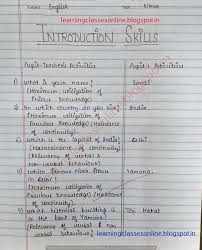 learningclassesonline.blogspot.in
Subject English
Topic Noun
INTRODUCTION SKILLS
Pupil-Teacher's Activities
Pupil's Activities
1) What is your name?
Sonal
(Maximum utilization of
Previous knowledge)
2) In which country do you live
India
(Maximum utilization of
Previous knowledge) (Maintance of
continuity).
3) Which is the capital of India?
Delhi
(Maintainance of continuity)
(Relevancy of verbal &
non-verbal behaviour)
4) Which famous river flows
Yamuna
in Delhi?
(Maximum utilization of
Previous knowledge) (Maintance of
continuity)
5) Which historical building is
Taj Mahal
on the bank of Yamuna?
(Relevancy of verbal & non-verbal
behaviour)
learningclassesonline.blogspot.in